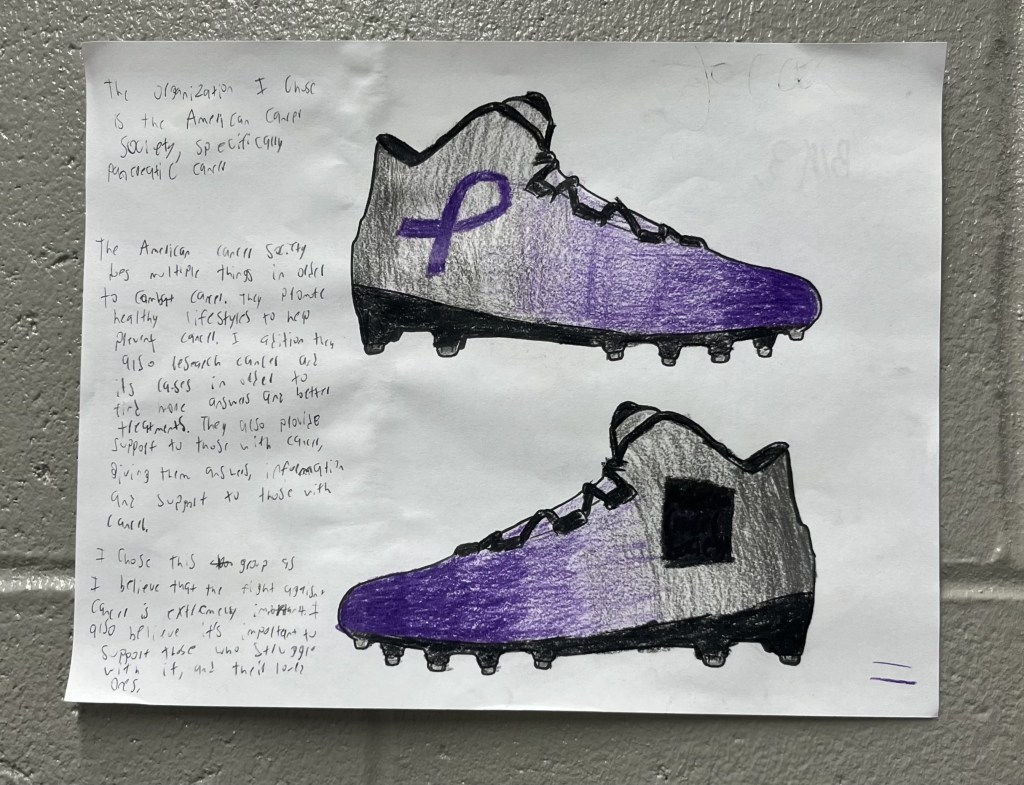 The organization I chose
is the American Cancer
Society, specifically
pancreatic cancer
The American cancer society
has multiple things in order
to combat cancer. They promote
healthy lifestyles to help
prevent cancer. I adition they
also research cancer and
its cases in order to
find more answers and better
treatments. They also provide
support to those with cancer,
giving them answers, information
and support to those with
cancer.
I chose this group as
I believe that the fight against
cancer is extremely important I
also believe it's important to
support those who struggle
with it, and their loved
ones,